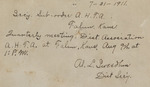 7-21-1911
Secy Sub order A.H.T.A.
Fulton Kans
Quarterly meeting, Dist Association
A.H.T.A. at Fulton, Kans, Aug 9th at
1: P.M.
Dist Secy.